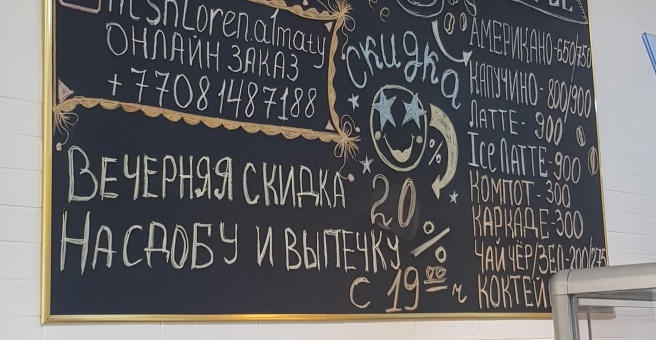 mshloren.almaty
ОНЛАЙН ЗАКАЗ
+77081487188
ВЕЧЕРНЯЯ СКИДКА
НА СДОБУ И ВЫПЕЧКУ
СКИДКА
%
20 %
С 19 00 ч
АМЕРИКАНО-650/750
КАПУЧИНО-800/900
ЛАТТЕ-900
Ice ЛАТТЕ-900
КОМПОТ-300
КАРКАДЕ-300
ЧАЙ ЧЁР/ЗЕЛ-200/275
КОКТЕЙ